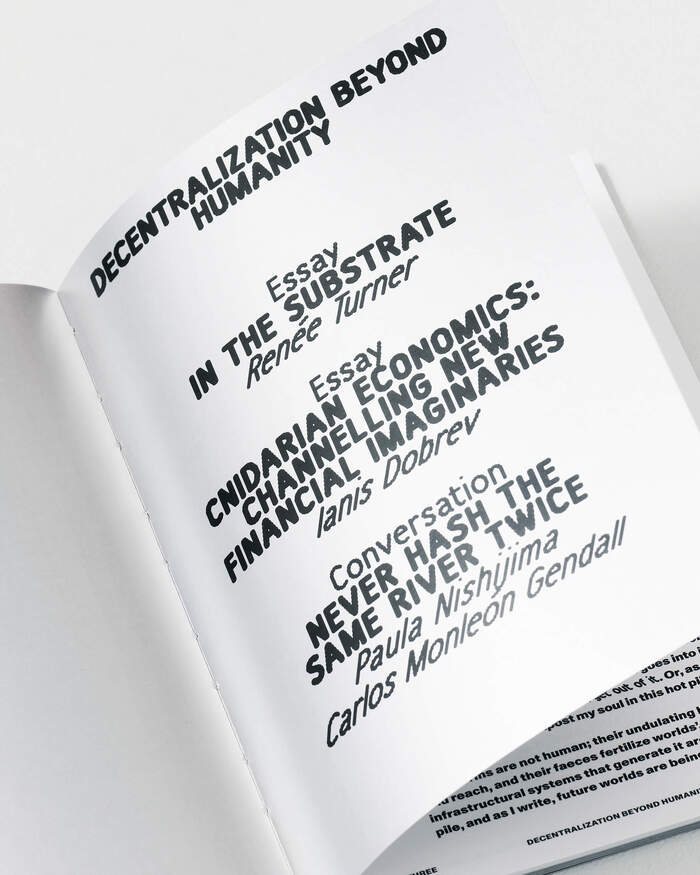 DECENTRALIZATION BEYOND
HUMANITY
Essay
IN THE SUBSTRATE
Renée Turner
Essay
CNIDARIAN ECONOMICS:
CHANNELLING NEW
FINANCIAL IMAGINARIES
Ianis Dobrev
Conversation
NEVER HASH THE
SAME RIVER TWICE
Paula Nishijima
Carlos Monleón Gendall
goes into
get out of it. Or, as
post my soul in this hot
are not human; their undulating
reach, and their faeces fertilize worlds
infrastructural systems that generate it
pile, and as I write, future worlds are being
DECENTRALIZATION BEYOND
THREE